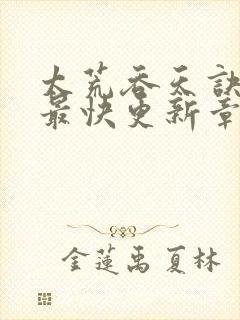 大荒吞天訣
最快更新章
金蓮禹夏林